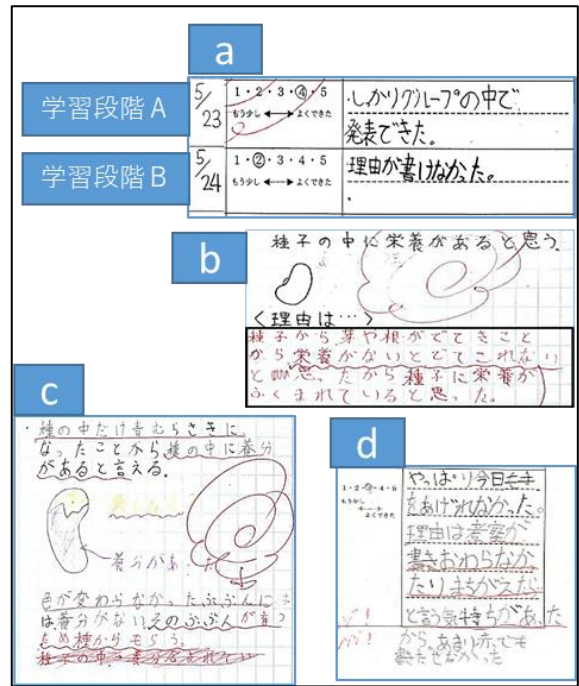 a
学習段階A
5/23
1・2・3・④・5
もう少し ←→ よくできた
・しっかりグループの中で
発表できた。
学習段階B
5/24
1・②・3・4・5
もう少し ←→ よくできた
理由が書けなかった。
・
b
種子の中に栄養があると思う。
<理由は…>
種子から芽や根がでてきたこと
から栄養がないとでてこれない
と思。だから種子に栄養が
ふくまれていると思った。
c
・種の中だけ青むらさきに
なったことから種の中に養分
があると言える。
養分があ
色が変わらなかったぶぶんに
は養分がない。そのぶぶんが育つ
ため種からもらう。
d
1・2・③・4・5
もう少し
←→
よくできた
やっぱり今日も手
をあげれなかった。
理由は考察が
書きおわらなか
たりまちがえたら
と言う気持ちがあった
から あまり赤でも
書きだせなかった